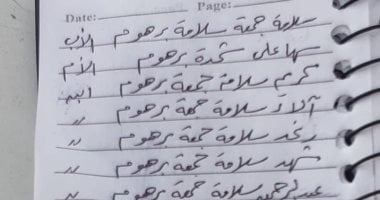 Date: Page:
سلامة جمعة سلامة برهوم الأب
سها على شحدة برهوم الأم
كرم سلامة جمعة برهوم البن
آلاء سلامة جمعة برهوم "
رغد سلامة جمعة برهوم "
شهد سلامة جمعة برهوم "
عبدالرحمن سلامة جمعة برهوم "